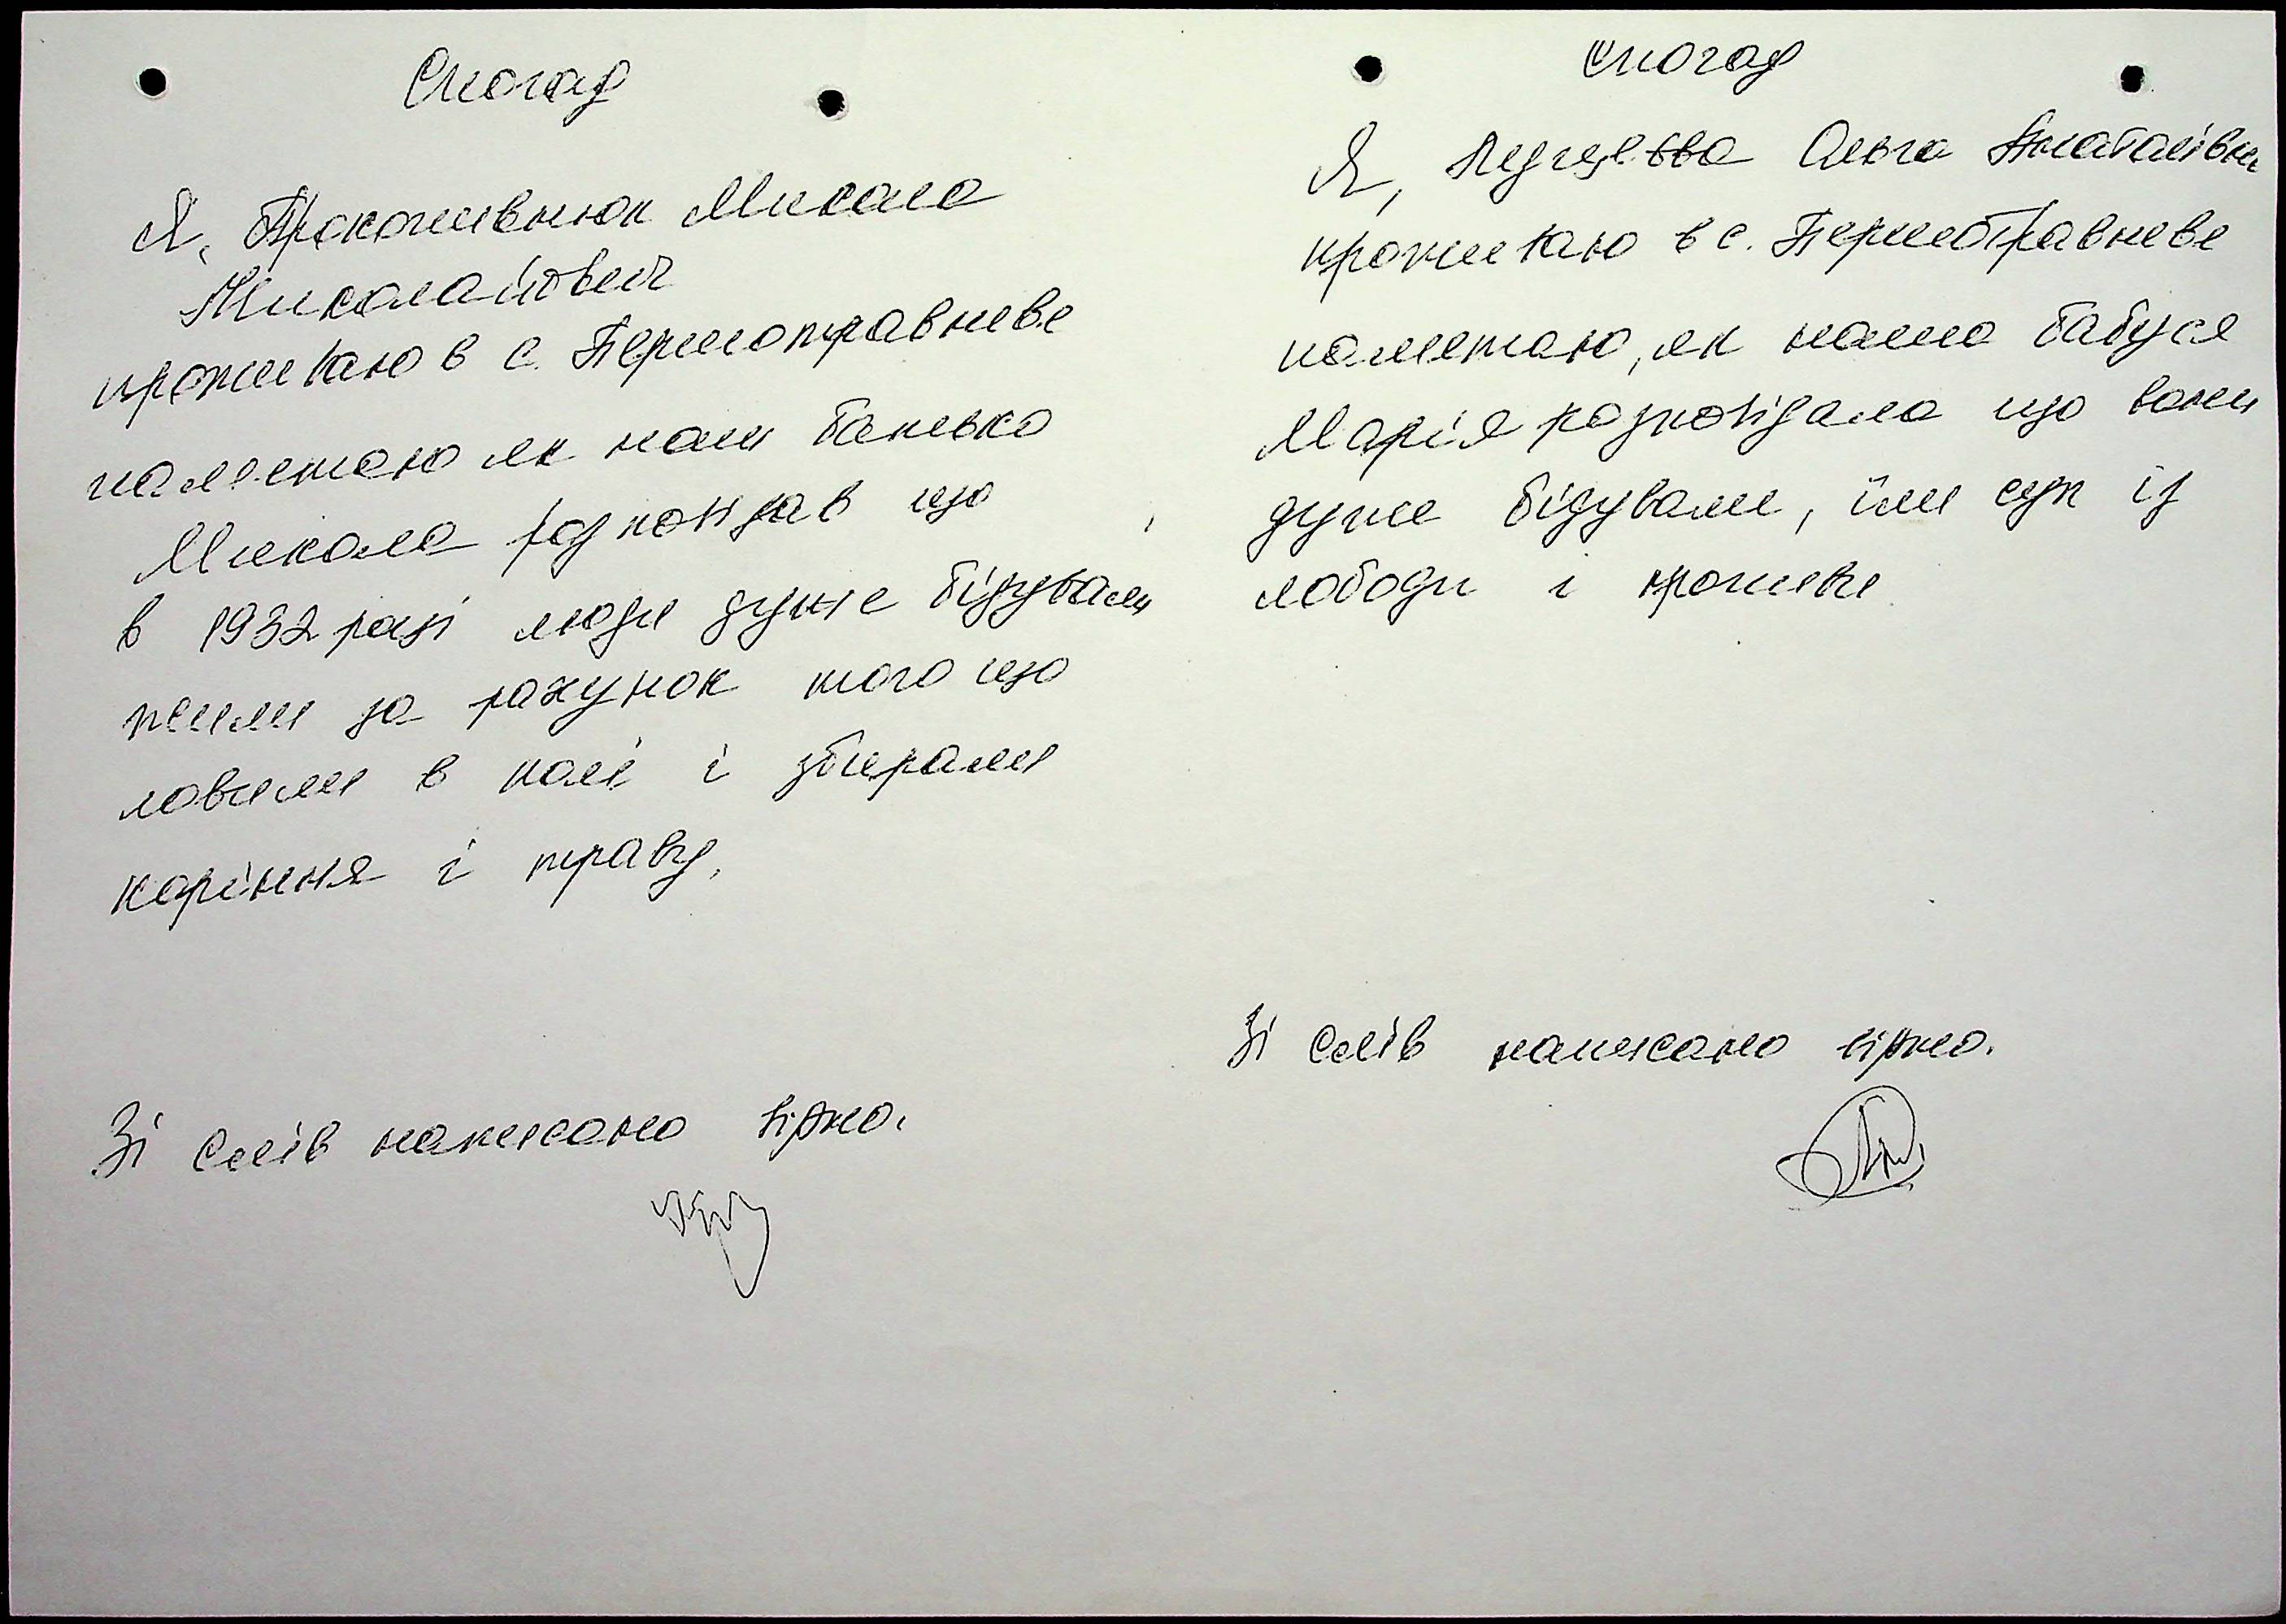 Спогад
Я, Микола
Миколайович
проживаю в с. Першотравневе
памятаю як наш батько
Микола розповідав що
в 1932 році люди дуже бідували
жили за рахунок того що
ловили в полі і збирали
коріння і траву.
Зі слів написано вірно.
Спогад
Я, Ольга Анатоліївна
проживаю в с. Першотравневе
памятаю, як наша бабуся
Марія розповідала що вони
дуже бідували, їли суп із
лободи і кропиви
Зі слів написано вірно.